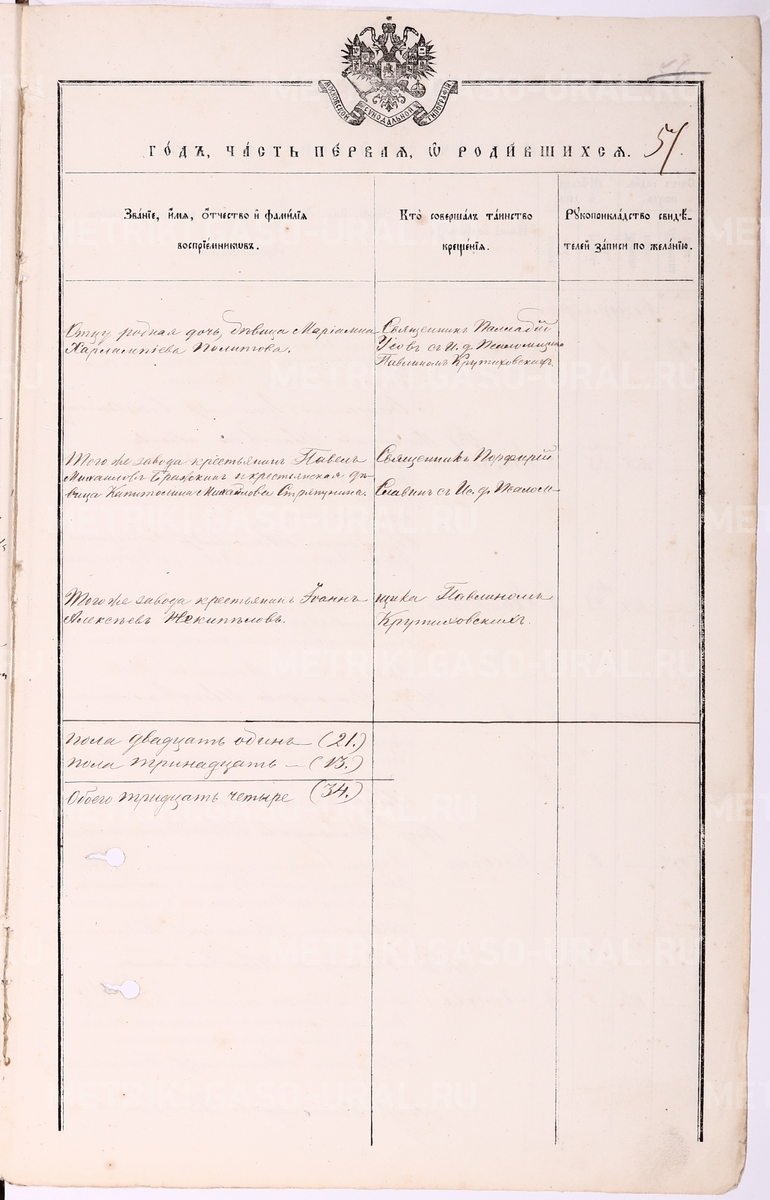 МОСКОВСКОЙ СѴНОДАЛЬНОЙ ТИПОГРАФІИ
го́дъ, ча́сть пе́рвая, ѡ҆ роди́вшихся. 51.
Зва́нїе, и҆́мя, ѻ҆́тчество и҆ фами́лїя
воспрїе́мниковъ.
Кто̀ соверша́лъ та́инство
креще́нїя.
Рꙋкоприкла́дство свидѣ́-
телей за́писи по жела́нїю.
Отцу родная дочь, дѣвица Маріамна
Харлампіева Политова.
Священникъ Палладій
Усовъ съ И. д. Псаломщика
Павлиномъ Крутиховскихъ
Того же завода крестьянинъ Павелъ
Михаиловъ и крестьянская дѣ-
вица Капитолина Михайлова Стряпунина.
Священникъ Порфирій
Славнинъ съ Ис. д. Псалом-
Того же завода крестьянинъ Іоаннъ
Алексѣевъ Некипѣловъ.
щика Павлиномъ
Крутиховскихъ.
пола двадцать одинъ — (21.)
пола тринадцать — (13.)
Обоего тридцать четыре (34.)
METRIKI.GASO-URAL.RU